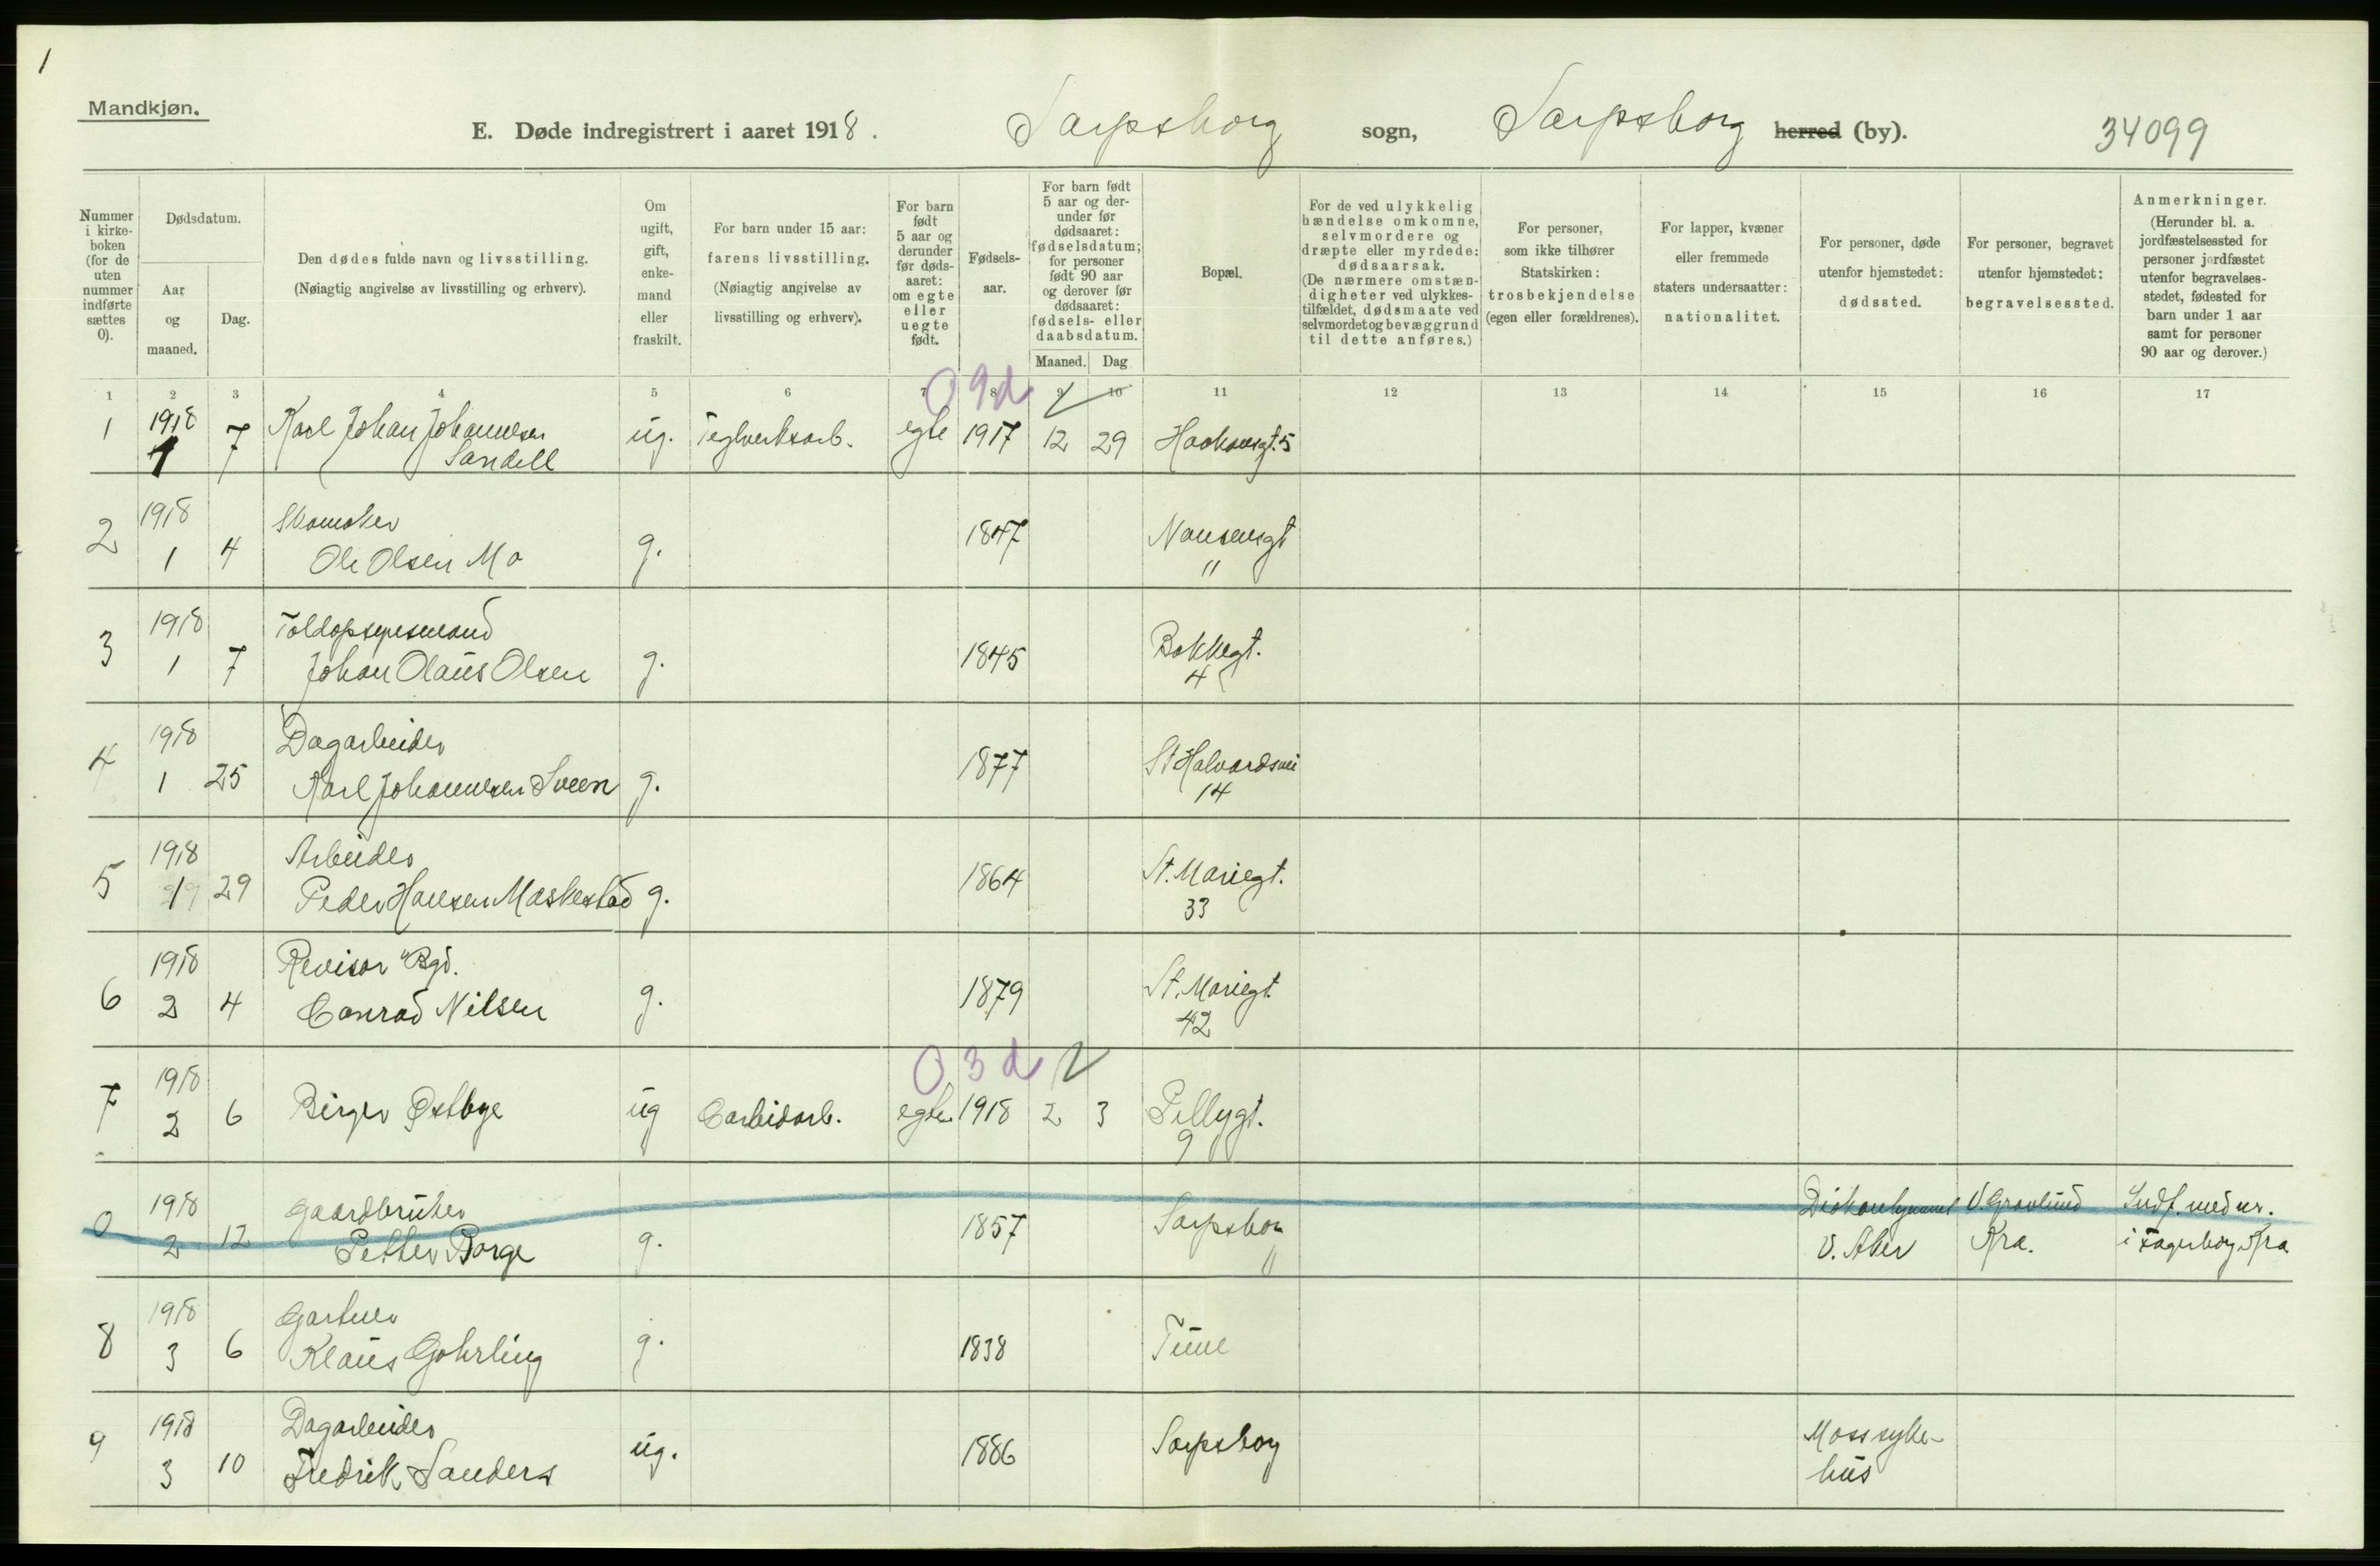 1
Mandkjøn.
E. Døde indregistrert i aaret 1918. Sarpsborg sogn, Sarpsborg herred (by). 34099
Nummer i kirke-boken (for de uten nummer indførte sættes 0).
Dødsdatum.
Aar og maaned.
Dag.
Den dødes fulde navn og livsstilling.
(Nøiagtig angivelse av livsstilling og erhverv).
Om ugift, gift, enke-mand eller fraskilt.
For barn under 15 aar: farens livsstilling.
(Nøiagtig angivelse av livsstilling og erhverv).
For barn født 5 aar og derunder før døds-aaret: om egte eller uegte født.
Fødsels-aar.
For barn født 5 aar og der-under før dødsaaret: fødselsdatum; for personer født 90 aar og derover før dødsaaret: fødsels- eller daabsdatum.
Maaned. Dag
Bopæl.
For de ved ulykkelig hændelse omkomne, selvmordere og dræpte eller myrdede: dødsaarsak.
(De nærmere omstæn-digheter ved ulykkes-tilfældet, dødsmaate ved selvmordet og bevæggrund til dette anføres.)
For personer, som ikke tilhører Statskirken: trosbekjendelse (egen eller forældrenes).
For lapper, kvæner eller fremmede staters undersaatter: nationalitet.
For personer, døde utenfor hjemstedet: dødssted.
For personer, begravet utenfor hjemstedet: begravelsessted.
Anmerkninger.
(Herunder bl. a. jordfæstelsessted for personer jordfæstet utenfor begravelses-stedet, fødested for barn under 1 aar samt for personer 90 aar og derover.)
1 2 3 4 5 6 7 8 9 10 11 12 13 14 15 16 17
0 9d
1 1918 1 7 Karl Johan Johannesen Sandell ug. Teglverksarb. egte 1917 12 29 Haakonsgt. 5
2 1918 1 4 Skomaker
Ole Olsen Mo g. 1847 Nansensgt "
3 1918 1 7 Toldopsynsmand
Johan Olaus Olsen g. 1845 Bakkegt. 4
4 1918 1 25 Dagarbeider
Karl Johannesen Sveen g. 1877 St Halvardsvei 14
5 1918 1 29 Arbeider
Peder Hansen Maskestad g. 1864 St. Mariegt. 33
6 1918 2 4 Revisor Bgd.
Conrad Nilsen g. 1879 St. Mariegt. 42
0 3d
7 1918 2 6 Birger Østbye ug Carbidarb. egte 1918 2 3 Pellygt. 9
0 1918 2 12 Gaardbruker
Petter Borge g. 1857 Sarpsborg " V. Aker V. Gravlund Kra. Indf. med nr. i Fagerborg Kra
8 1918 3 6 Gartner
Klaus Gohrling g. 1838 Tune
9 1918 3 10 Dagarbeider
Fredrik Sanders ug. 1886 Sarpsborg Moss syke-
hus